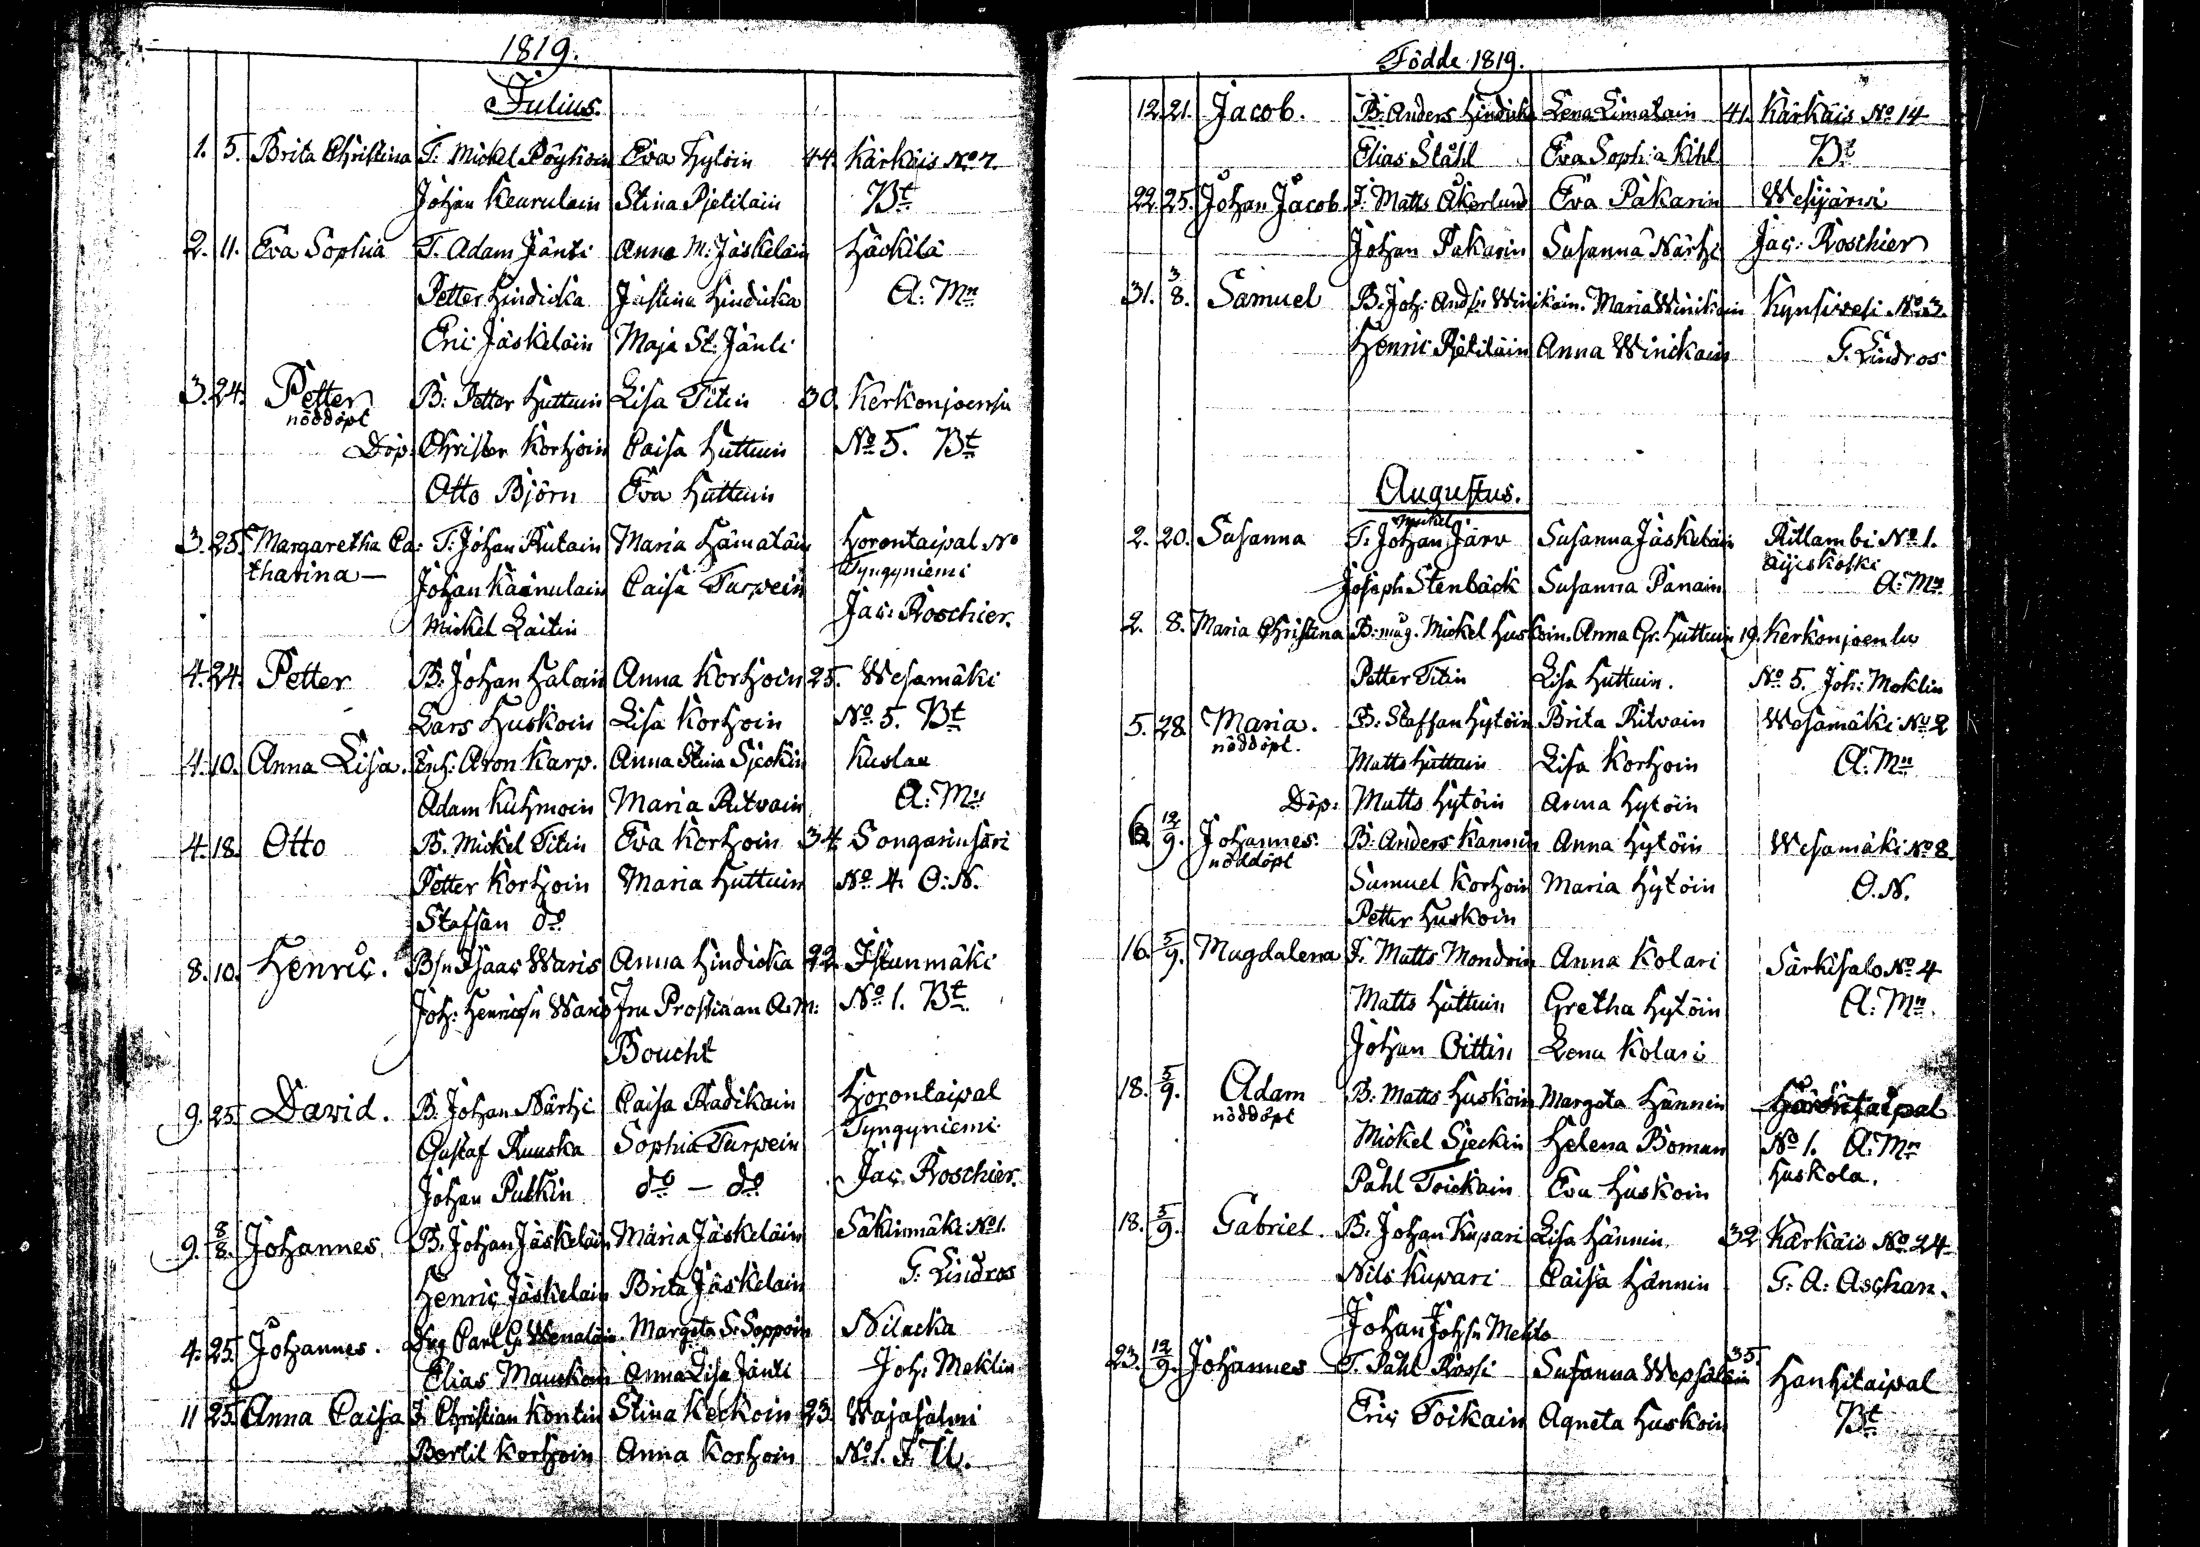 1819.
Julius.
1. 5. Brita Christina T. Mickel Pöyhöin Eva Hytöin 44. Kärkäis No 7.
Johan Keurulain Stina Pjetiläin Bt
2. 11. Eva Sophia T. Adam Jänti Anna M: Jäskeläin Häckilä
Petter Hindicka Justina Hindicka A: Mn
Eric Jäskeläin Maja St: Jänti
3. 24. Petter B: Petter Huttuin Lisa Titin 30. Kerkonjoensu
nöddöpt
Döp: Christer Korhoin Caisa Huttuin No 5. Bt
Otto Björn Eva Huttuin
3. 25. Margaretha Ca: T: Johan Rutain Maria Hämäläin Horontaipal No
tharina — Johan Käänulain Caisa Turpein Tyngyniemi
Mickel Laitin Jac: Roschier.
4. 24. Petter B. Johan Haloin Anna Korhoin 25. Wesamäki
Lars Huskoin Lisa Korhoin No 5. Bt
4. 10. Anna Lisa. Enh: Aron Karp. Anna Stina Sjeckin Kuslaa
Adam Kuhmoin Maria Ritvain A: Mn
4. 18. Otto B. Mickel Titin Eva Korhoin 34. Songarinsari
Petter Korhoin Maria Huttuin No 4. O: N.
Staffan do
8. 10. Henric. Bsn Isaac Waris Anna Hindicka 22. Istunmäki
Joh: Henricsn Waris Fru Prostinnan A: M: No 1. Bt
Boucht
9. 25. David. B. Johan Närhi Caisa Radikain Horontaipal
Gustaf Ruuska Sophia Turpein Tyngyniemi
Johan Putkin do — do Jac: Roschier.
9. 8/8. Johannes. B. Johan Jäskeläin Maria Jäskeläin Säkinmäki No 1.
Henric Jäskelain Brita Jäskelain G: Lindros
4. 25. Johannes. Drg Carl G: Wenäläin Margeta S: Soppoin Nilacka
Elias Mauckoin Anna Lisa Jänti Joh: Meklin
11 25. Anna Caisa I. Christian Kontin Stina Keckoin 23. Wajasalmi
Bertil Korhoin Anna Korhoin No 1. I: U.
Födde 1819.
12. 21. Jacob. B: Anders Hindicka Lena Limatain 41. Kärkäis No 14
Elias Ståhl Eva Sophia Kihl Bt
22. 25. Johan Jacob. I: Matts Åkerlund Eva Pakarin Wesijärvi
Johan Pakarin Susanna Närhi Jac: Roschier
31. 3/8. Samuel B. Joh: Andsn Winikain. Maria Winikain Kynsivesi No 3.
Henric Pjetiläin Anna Winickain G. Lindros
Augustus.
Mickel
2. 20. Susanna T. Johan Järv Susanna Jäskeläin Ritlambi No 1.
Äijeskoski
Joseph Stenbäck Susanna Panain A: Mn
2. 8. Maria Christina B: måg. Mickel Huskoin. Anna Gr. Huttuin 19. Kerkonjoensu
Petter Titin Lisa Huttuin. No 5. Joh: Meklin
5. 28. Maria. B: Staffan Hytöin Brita Ritvain Wesamäki No 2
nöddöpt. Matts Huttuin Lisa Korhoin A: Mn
Döp: Matts Hytöin Anna Hytöin
6. 12/9. Johannes B: Anders Kannin Anna Hytöin Wesamäki No 8.
nöddöpt
Samuel Korhoin Maria Hytöin O. N.
Petter Huskoin
16. 5/9. Magdalena I. Matts Mondoin Anna Kolari Särkisalo No 4
Matts Huttuin Gretha Hytöin A: Mn.
Johan Oittin Lena Kolari
18. 5/9. Adam B. Matts Huskoin Margeta Hännin
nöddöpt Mickel Sjeckin Helena Boman No 1. A: Mn
Påhl Toickain Eva Huskoin Huskola.
18. 5/9. Gabriel B. Johan Kupari Lisa Hännin 32 Kärkäis No 24
Nils Kupari Caisa Hännin G: A: Aschan.
Johan Johsn Mehto
23. 12/9. Johannes T. Påhl Rossi Susanna Wepsäläin 35. Hanhitaipal
Eric Toikain Agneta Huskoin Bt